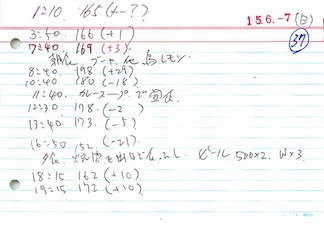 1:10 165 (+-?)
15.6.-7 (日)
37
3:50. 166 (+1)
7:40. 169 (+3)
朝食、
8:40. 198 (+29)
10:40 180 (-18)
11:40. カレースープで昼食.
12:30 178. (-2)
13:40 173. (-5)
16:50 152. (-21)
夕食、焼肉 ビール 500×2. W×3.
18:15 162 (+10)
19:15 172 (+10)